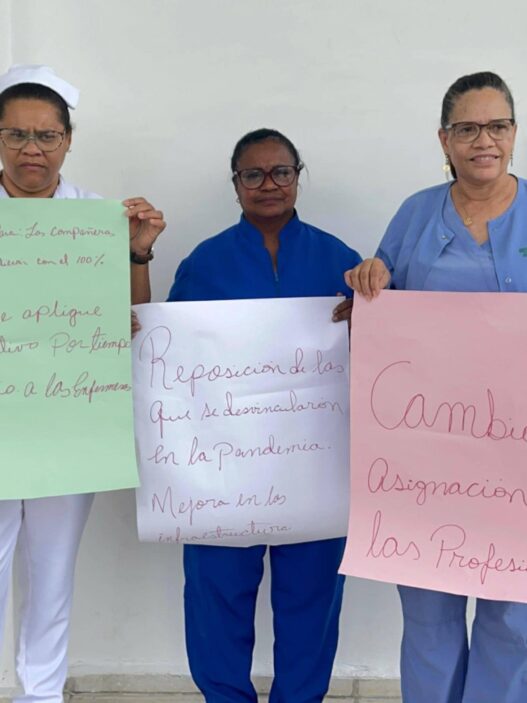 Los Compañeras
con el 100%
e aplique
Por tiempo
o a las Enfermeras
Reposicion de las
que se desvincularion
en la Pandemia.
Mejora en los
infraestructura
Cambie
Asignacion
las Profesi